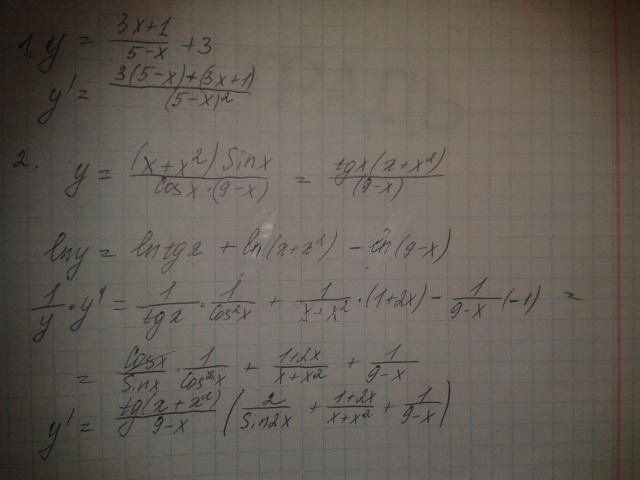 1. y = (3x+1)/(5-x) + 3
y' = (3(5-x)+(3x+1))/(5-x)²
2. y = ((x+x²) Sinx)/(Cosx·(9-x)) = (tgx(x+x²))/(9-x)
lny = lntgx + ln(x+x²) - ln(9-x)
1/y · y' = 1/tgx · 1/Cos²x + 1/(x+x²) · (1+2x) - 1/(9-x) (-1) =
= Cosx/Sinx · 1/Cos²x + (1+2x)/(x+x²) + 1/(9-x)
y' = tg(x+x²)/(9-x) (2/Sin2x + (1+2x)/(x+x²) + 1/(9-x))